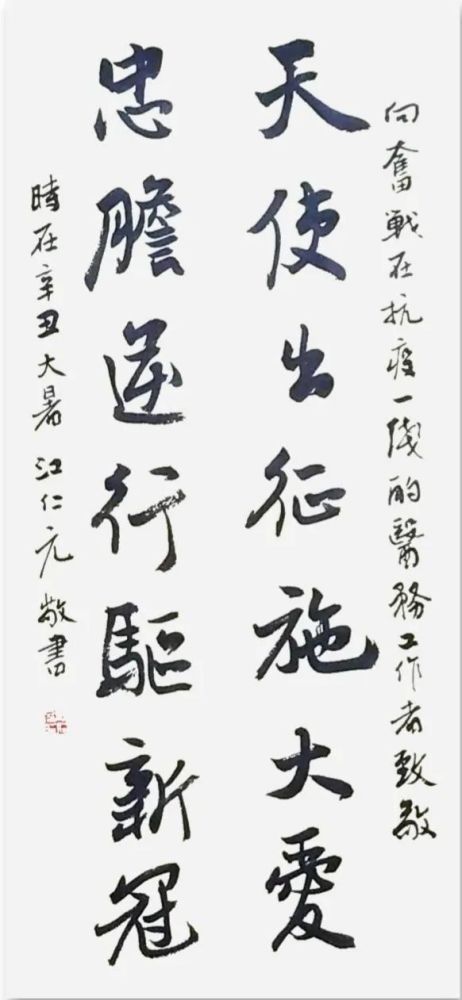 向奮戰在抗疫一线的醫務工作者致敬
天使出征施大愛
忠膽逆行驅新冠
時在辛丑大暑江仁元敬書